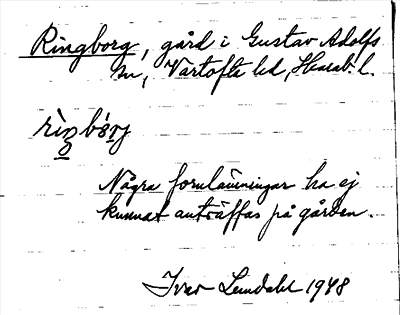 Ringborg, gård i Gustav Adolfs
sn, Vartofta hd, Skarab. l.
Några fornlämningar ha ej
kunnat anträffas på gården.
Ivar Lundahl 1948